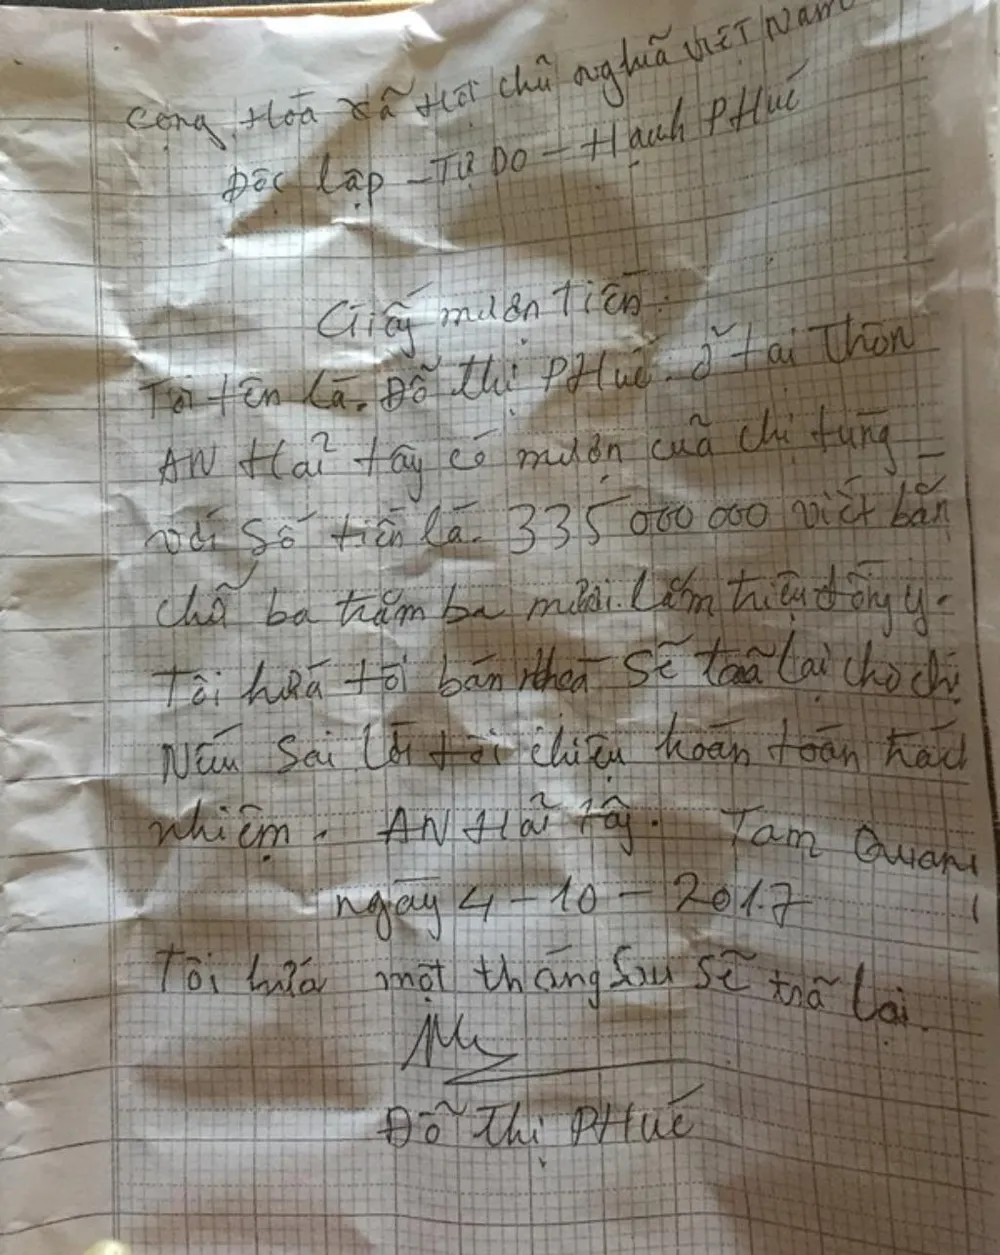 Cộng Hòa xã Hội chủ nghĩa VIỆT Nam
Độc lập - Tự DO - Hạnh PHúc
Giấy mượn tiền.
Tôi tên là. Đỗ thị PHúc. ở tại Thôn
AN Hải tây có mượn của chị tùng
với Số tiền là. 335 000 000 viết bằn
chữ ba trăm ba mươi. lăm triệu đồng y.
Tôi hứa tôi bán nhà Sẽ trã lại cho chị
Nếu Sai lời tôi chiệu hoàn toàn trác
nhiệm. AN Hải tây. Tam Quan
ngày 4 - 10 - 2017
Tôi hứa một tháng Sau Sẽ trã lại.
Đỗ Thị PHúc